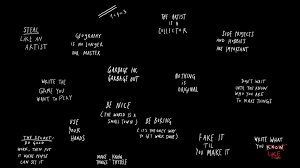 STEAL
LIKE AN
ARTIST
GEOGRAPHY
IS NO LONGER
OUR MASTER
THE ARTIST
IS A
COLLECTOR
SIDE PROJECTS
AND HOBBIES
ARE IMPORTANT
WRITE THE
BOOK YOU
WANT TO
GARBAGE IN,
GARBAGE OUT
NOTHING
IS
ORIGINAL
DON'T WAIT
UNTIL YOU KNOW
WHO YOU ARE
TO MAKE THINGS
USE
YOUR
HANDS
BE NICE
(THE WORLD IS A
SMALL TOWN.)
BE BORING
(IT'S THE ONLY WAY
TO GET WORK DONE.)
FAKE IT
'TIL
YOU MAKE IT
WRITE WHAT
YOU KNOW
LIKE
THE SECRET:
DO GOOD
WORK, THEN PUT
IT WHERE PEOPLE
CAN SEE IT